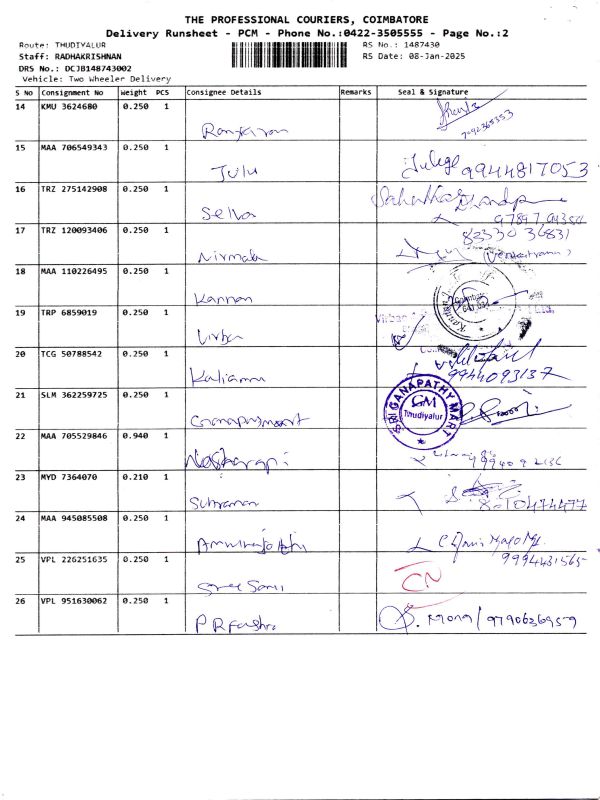 THE PROFESSIONAL COURIERS, COIMBATORE
Delivery Runsheet - PCM - Phone No.:0422-3505555 - Page No.:2
Route: THUDIYALUR
RS No.: 1487430
Staff: RADHAKRISHNAN
RS Date: 08-Jan-2025
DRS No.: DCJB148743002
Vehicle: Two Wheeler Delivery
S No Consignment No Weight PCS Consignee Details Remarks Seal & Signature
14 KMU 3624680 0.250 1
15 MAA 706549343 0.250 1
Julu 9944817053
16 TRZ 275142908 0.250 1
Selva
17 TRZ 120093406 0.250 1
83330 36831
Nirmala
18 MAA 110226495 0.250 1
Kannan
19 TRP 6859019 0.250 1
Virba
20 TCG 50788542 0.250 1
9944093137
21 SLM 362259725 0.250 1
SRI GANAPATHY MART
GM
Thudiyalur
22 MAA 705529846 0.940 1
23 MYD 7364070 0.210 1
8010474477
24 MAA 945085508 0.250 1
9994431565
25 VPL 226251635 0.250 1
CN
26 VPL 951630062 0.250 1
9790636959